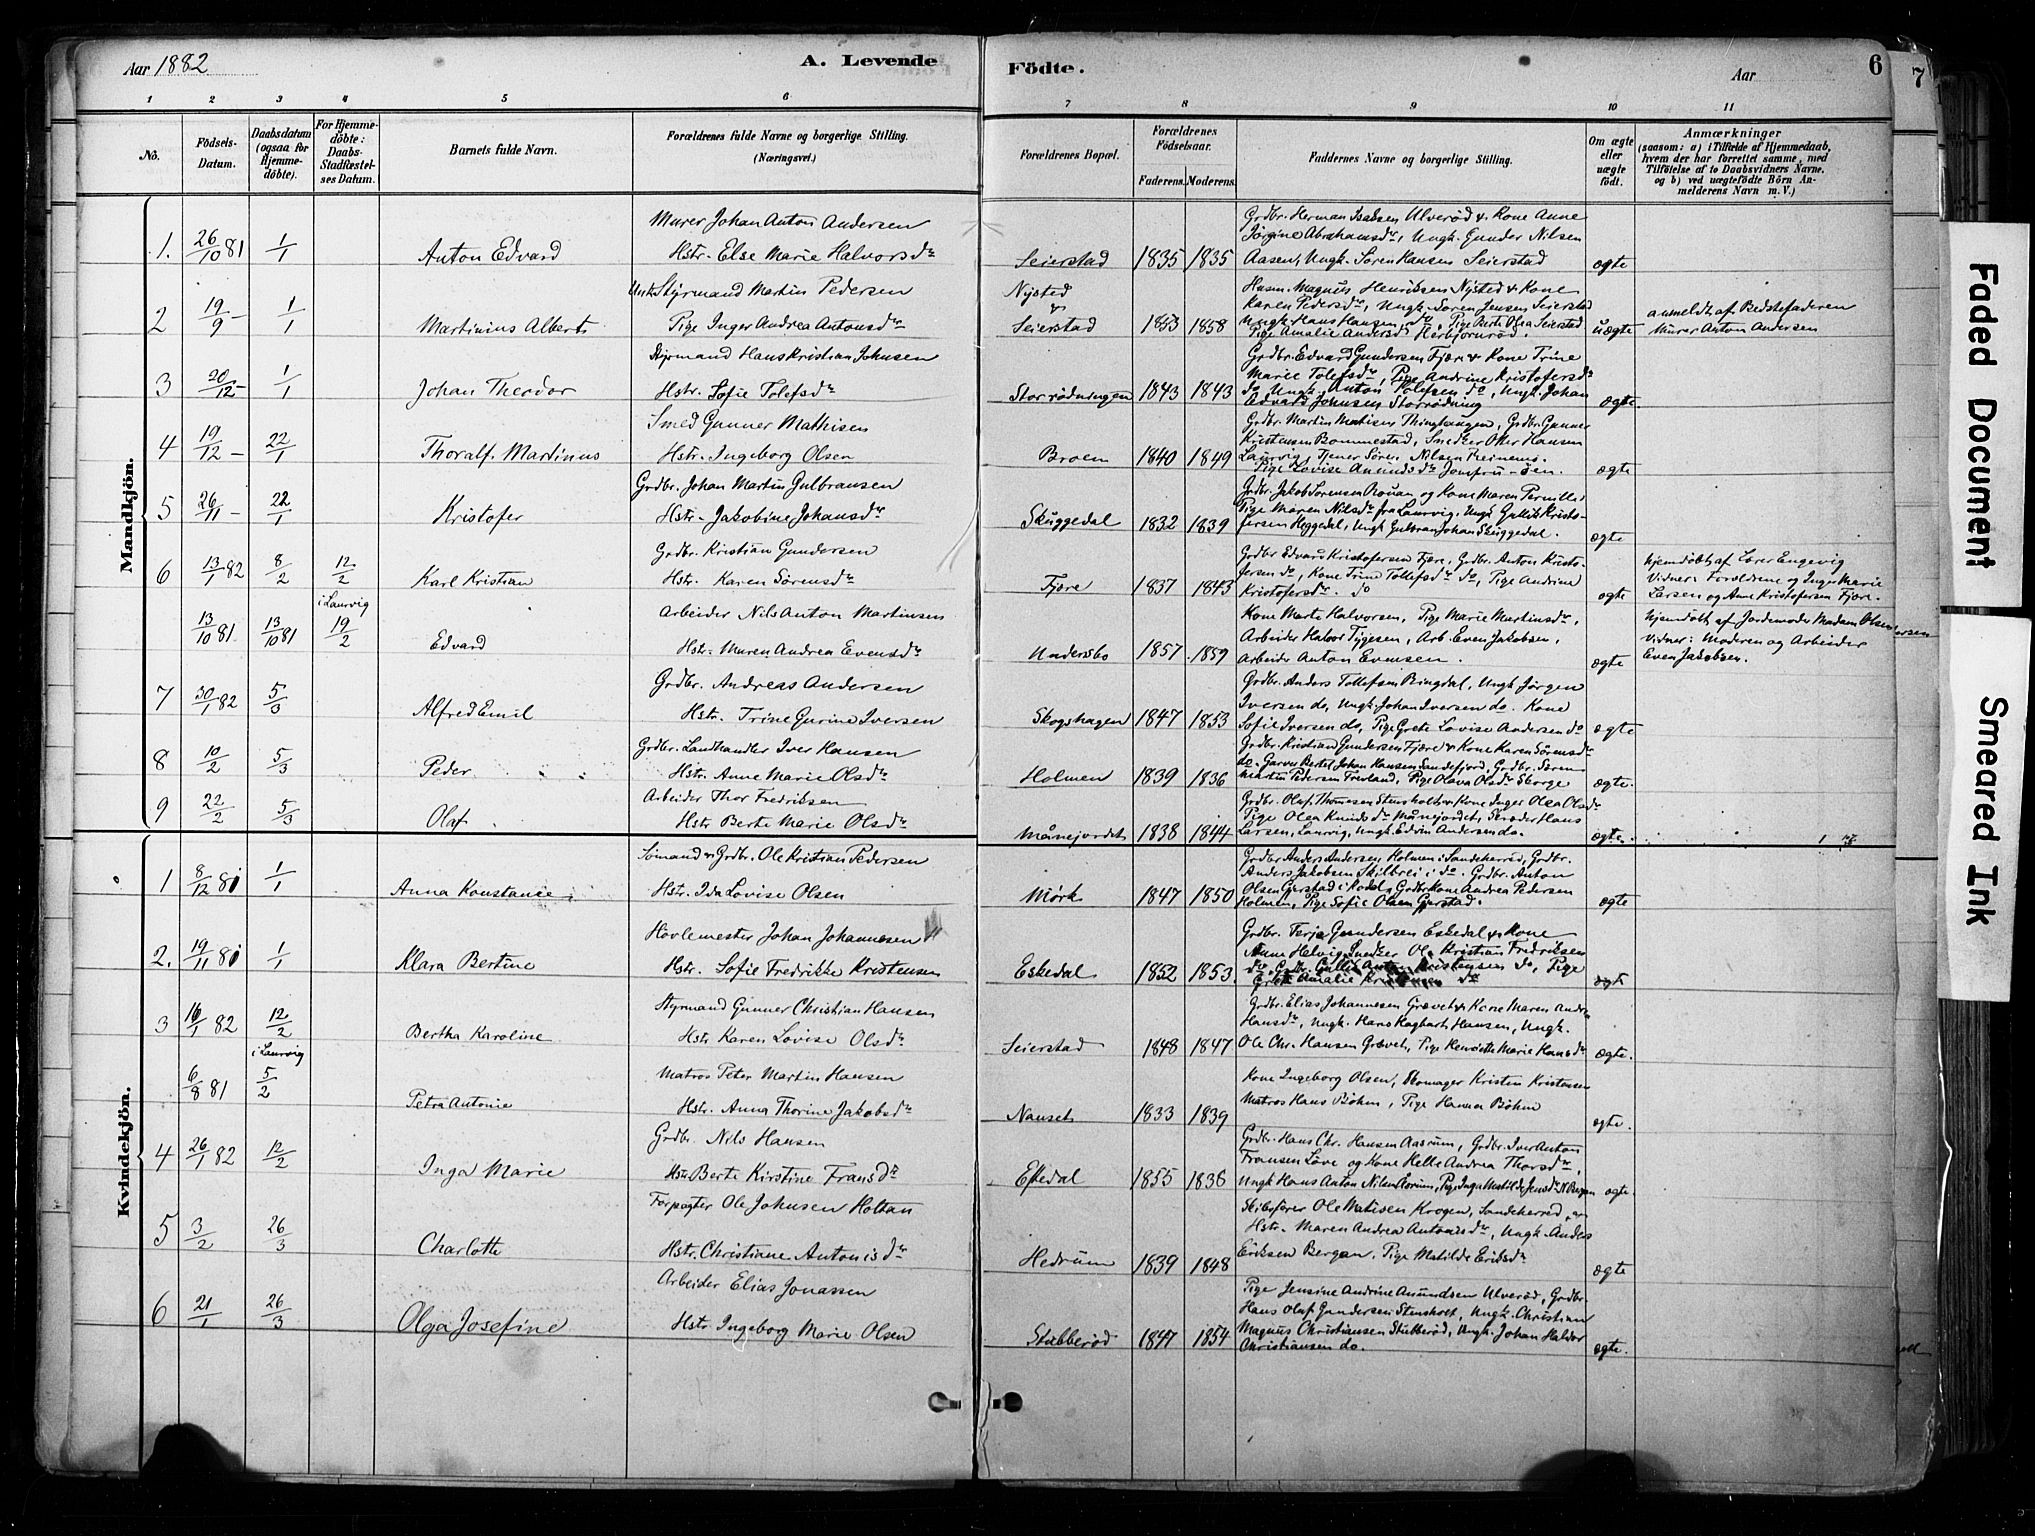 Aar 1882
A. Levende
Födte.
Aar
6
7
1 2 3 4 5 6 7 8 9 10 11
No.
Födsels-
Datum.
Daabsdatum
(ogsaa for
Hjemme-
döbte).
For Hjemme-
döbte:
Daabs-
Stadfæstel-
ses Datum.
Barnets fulde Navn.
Forældrenes fulde Navne og borgerlige Stilling.
(Næringsvei.)
Forældrenes Bopæl.
Forældrenes
Födselsaar.
Faderens. Moderens.
Faddernes Navne og borgerlige Stilling.
Om ægte
eller
uægte
födt.
Anmærkninger
(saasom: a) i Tilfælde af Hjemmedaab,
hvem der har forrettet samme, med
Tilföielse af to Daabsvidners Navne,
og b) ved uægtefödte Börn An-
melderens Navn m. V.)
Mandkjön.
1. 26/10 81 1/1 Anton Edvard
Murer Johan Anton Andersen
Hstr. Else Marie Halvorsdr
Seierstad 1835 1835
Grdbr. Herman Isaksen Ulverød & Kone Anne
Jørgine Abrahamsdr, Ungk. Gunder Nilsen
Aasen, Ungk. Søren Hansen Seierstad
ægte
2 19/9 - 1/1 Martinius Albert
Styrmand Martin Pedersen
Pige Inger Andrea Antonsdr
Nysted
&
Seierstad 1853 1858
Husm. Magnus Henriksen Nysted & Kone
Karen Pedersdr, Ungk. Søren Jensen Seierstad
Ungk. Hans Hansen do, Pige Berte Olea Seierstad
Pige Amalie Andersdr Herbjørnrød.
uægte
anmeldt af Bedstefaderen
Murer Anton Andersen
3 20/12 - 1/1 Johan Theodor
Styrmand Hans Kristian Johnsen
Hstr. Sofie Tolefsdr
Storrødningen 1843 1843
Grdbr. Edvard Gundersen Fjære & Kone Trine
Marie Tolefsdr, Pige Andrine Kristofersdr
do Ungk. Anton Tolefsen do, Ungk. Johan
Edvard Johnsen Storrødning
ægte.
4 19/12 - 22/1 Thoralf Martinus
Smed Gunner Mathisen
Hstr. Ingeborg Olsen
Broen 1840 1849
Grdbr. Martin Mathisen Thinghaugen, Grdbr. Gunner
Kristensen Bommestad, Snedker Oller Hansen
Laurvig, Tjener Søren Nilsen
Pige Lovise Amundsdr Jomfru-øen.
ægte
5 26/11 - 22/1 Kristofer
Grdbr. Johan Martin Gulbransen
Hstr. Jakobine Johansdr
Skuggedal 1832 1839
Grdbr. Jakob Sørensen Rouan og Kone Maren Pernille,
Pige Maren Nilsdr fra Laurvig, Ungk Gullik Kristo-
fersen Heggedal, Ungk Gulbran Johan Skuggedal.
ægte
6 13/1 82 8/2 12/2 Karl Kristian
Grdbr. Kristian Gundersen
Hstr. Karen Sørensdr
Fjøre 1837 1843
Grdbr Edvard Kristofersen Fjære, Grdbr. Anton Kristo-
fersen do, Kone Trine Tollefsdr do, Pige Andrine
Kristofersdr. do
ægte
hjemdøbt af Lærer Engevig
Vidner: Forældrene og Inger Marie
Larsen og Anne Kristofersen Fjære.
i Laurvig
13/10 81 13/10 81 19/2 Edvard
Arbeider Nils Anton Martinsen
Hstr. Maren Andrea Evensdr
Undersbo 1857 1859
Kone Marte Halvorsen, Pige Marie Martinsdr,
Arbeider Halvor Tygesen, Arb. Even Jakobsen,
Arbeider Anton Evensen.
ægte
hjemdøbt af Jordemoder Madam Olsen
Vidner: Moderen og Arbeider
Even Jakobsen.
7 30/1 82 5/3 Alfred Emil
Grdbr. Andreas Andersen
Hstr. Trine Gurine Iversen
Skogshagen 1847 1853
Grdbr. Anders Tollefsen Ringdal, Ungk Jørgen
Iversen do, Ungk. Johan Iversen do. Kone
Sofie Iversen do, Pige Grete Lovise Andersen do
ægte
8 10/2 5/3 Peder
Grdbr. Landhandler Iver Hansen
Hstr. Anne Marie Olsdr
Holmen 1839 1836
Grdbr. Kristian Gundersen Fjære & Kone Karen Sørensdr
do. Garver Bertel Johan Hansen Sandefjord, Grdbr. Søren
Martin Pedersen Trevland, Pige Olava Olsdr Skorge
ægte.
9 22/2 5/3 Olaf
Arbeider Thor Fredriksen
Hstr Berte Marie Olsdr
Månejordet 1838 1844
Grdbr. Olaf Thomesen Stensholt & Kone Inger Olea Olsdr
Pige Olea Knudsdr Månejordet, Skræder Hans
Larsen, Laurvig, Ungk. Edvin Andersen do.
ægte.
Kvindekjön.
1 8/12 81 1/1 Anna Konstance
Sømand & Grdbr. Ole Kristian Pedersen
Hstr. Ida Lovise Olsen
Mørk 1847 1850
Grdbr Anders Andersen Holmen i Sandeherred, Grdbr.
Anders Jakobsen Skilbrei i do. Grdbr. Anton
Olsen Gjerstad i Kodal & Grdbrkone Andrea Pedersen
Holmen, Pige Sofie Olsen Gjerstad.
ægte
2. 19/11 81 1/1 Klara Bertine
Høvlemester Johan Johannesen
Hstr. Sofie Fredrikke Kristensen
Eskedal 1852 1853.
Grdbr. Terje Gundersen Eskedal & Kone
Anne Helvig, Snedker Ole Kristian Fredriksen
do, Grdbr. Gullik Anton Kristensen do, Pige
Grete Amalie do
ægt
3 16/1 82 12/2 Bertha Karoline
Styrmand Gunner Christian Hansen
Hstr Karen Lovise Olsdr
Seierstad 1848 1847
Grdbr. Elias Johannesen Grævet & Kone Maren Andrea
Hansdr, Ungk. Hans Hagbart Hansen, Ungk.
Ole Chr. Hansen Grævet, Pige Henriette Marie Hansdr
ægte.
i Laurvig
6/8 81 5/2 Petra Antonie
Matros Peter Martin Hansen
Hstr. Anna Thorine Jakobsdr
Nanset 1833 1839
Kone Ingeborg Olsen, Skomager Kristen Kristensen
Matros Hans Bøhm, Pige Hanna Bøhm
ægte.
4 26/1 82 12/2 Inga Marie
Grdbr. Nils Hansen
Hstr Berte Kirstine Fransdr
Eftedal 1855 1836
Grdbr. Hans Chr. Hansen Aasrum, Grdbr. Iver Anton
Fransen Løve og Kone Helle Andrea Thorsdr,
Ungk Hans Anton Nilsen Aarum, Pige Inga Matilde Jensdr N. Bergan
ægte.
5 3/2 26/3 Charlotte
Forpagter Ole Johnsen Holtan
Hstr. Christiane Antonisdr
Hedrum 1839 1848
Skibsfører Ole Matisen Krogen, Sandeherred, &
Hstr. Maren Andrea Antonsdr, Ungk. Anders
Eriksen Bergan, Pige Matilde Eriksdr
ægte
6 21/1 26/3 Olga Josefine
Arbeider Elias Jonassen
Hstr. Ingeborg Marie Olsen
Stubberød 1847 1854
Pige Jensine Andrine Amundsen Ulverød, Grdbr.
Hans Olaf Gundersen Stensholt, Ungk. Christian
Magnus Christiansen Stubberød, Ungk. Johan Halvor
Christiansen do.
ægte.
Faded Document
Smeared Ink